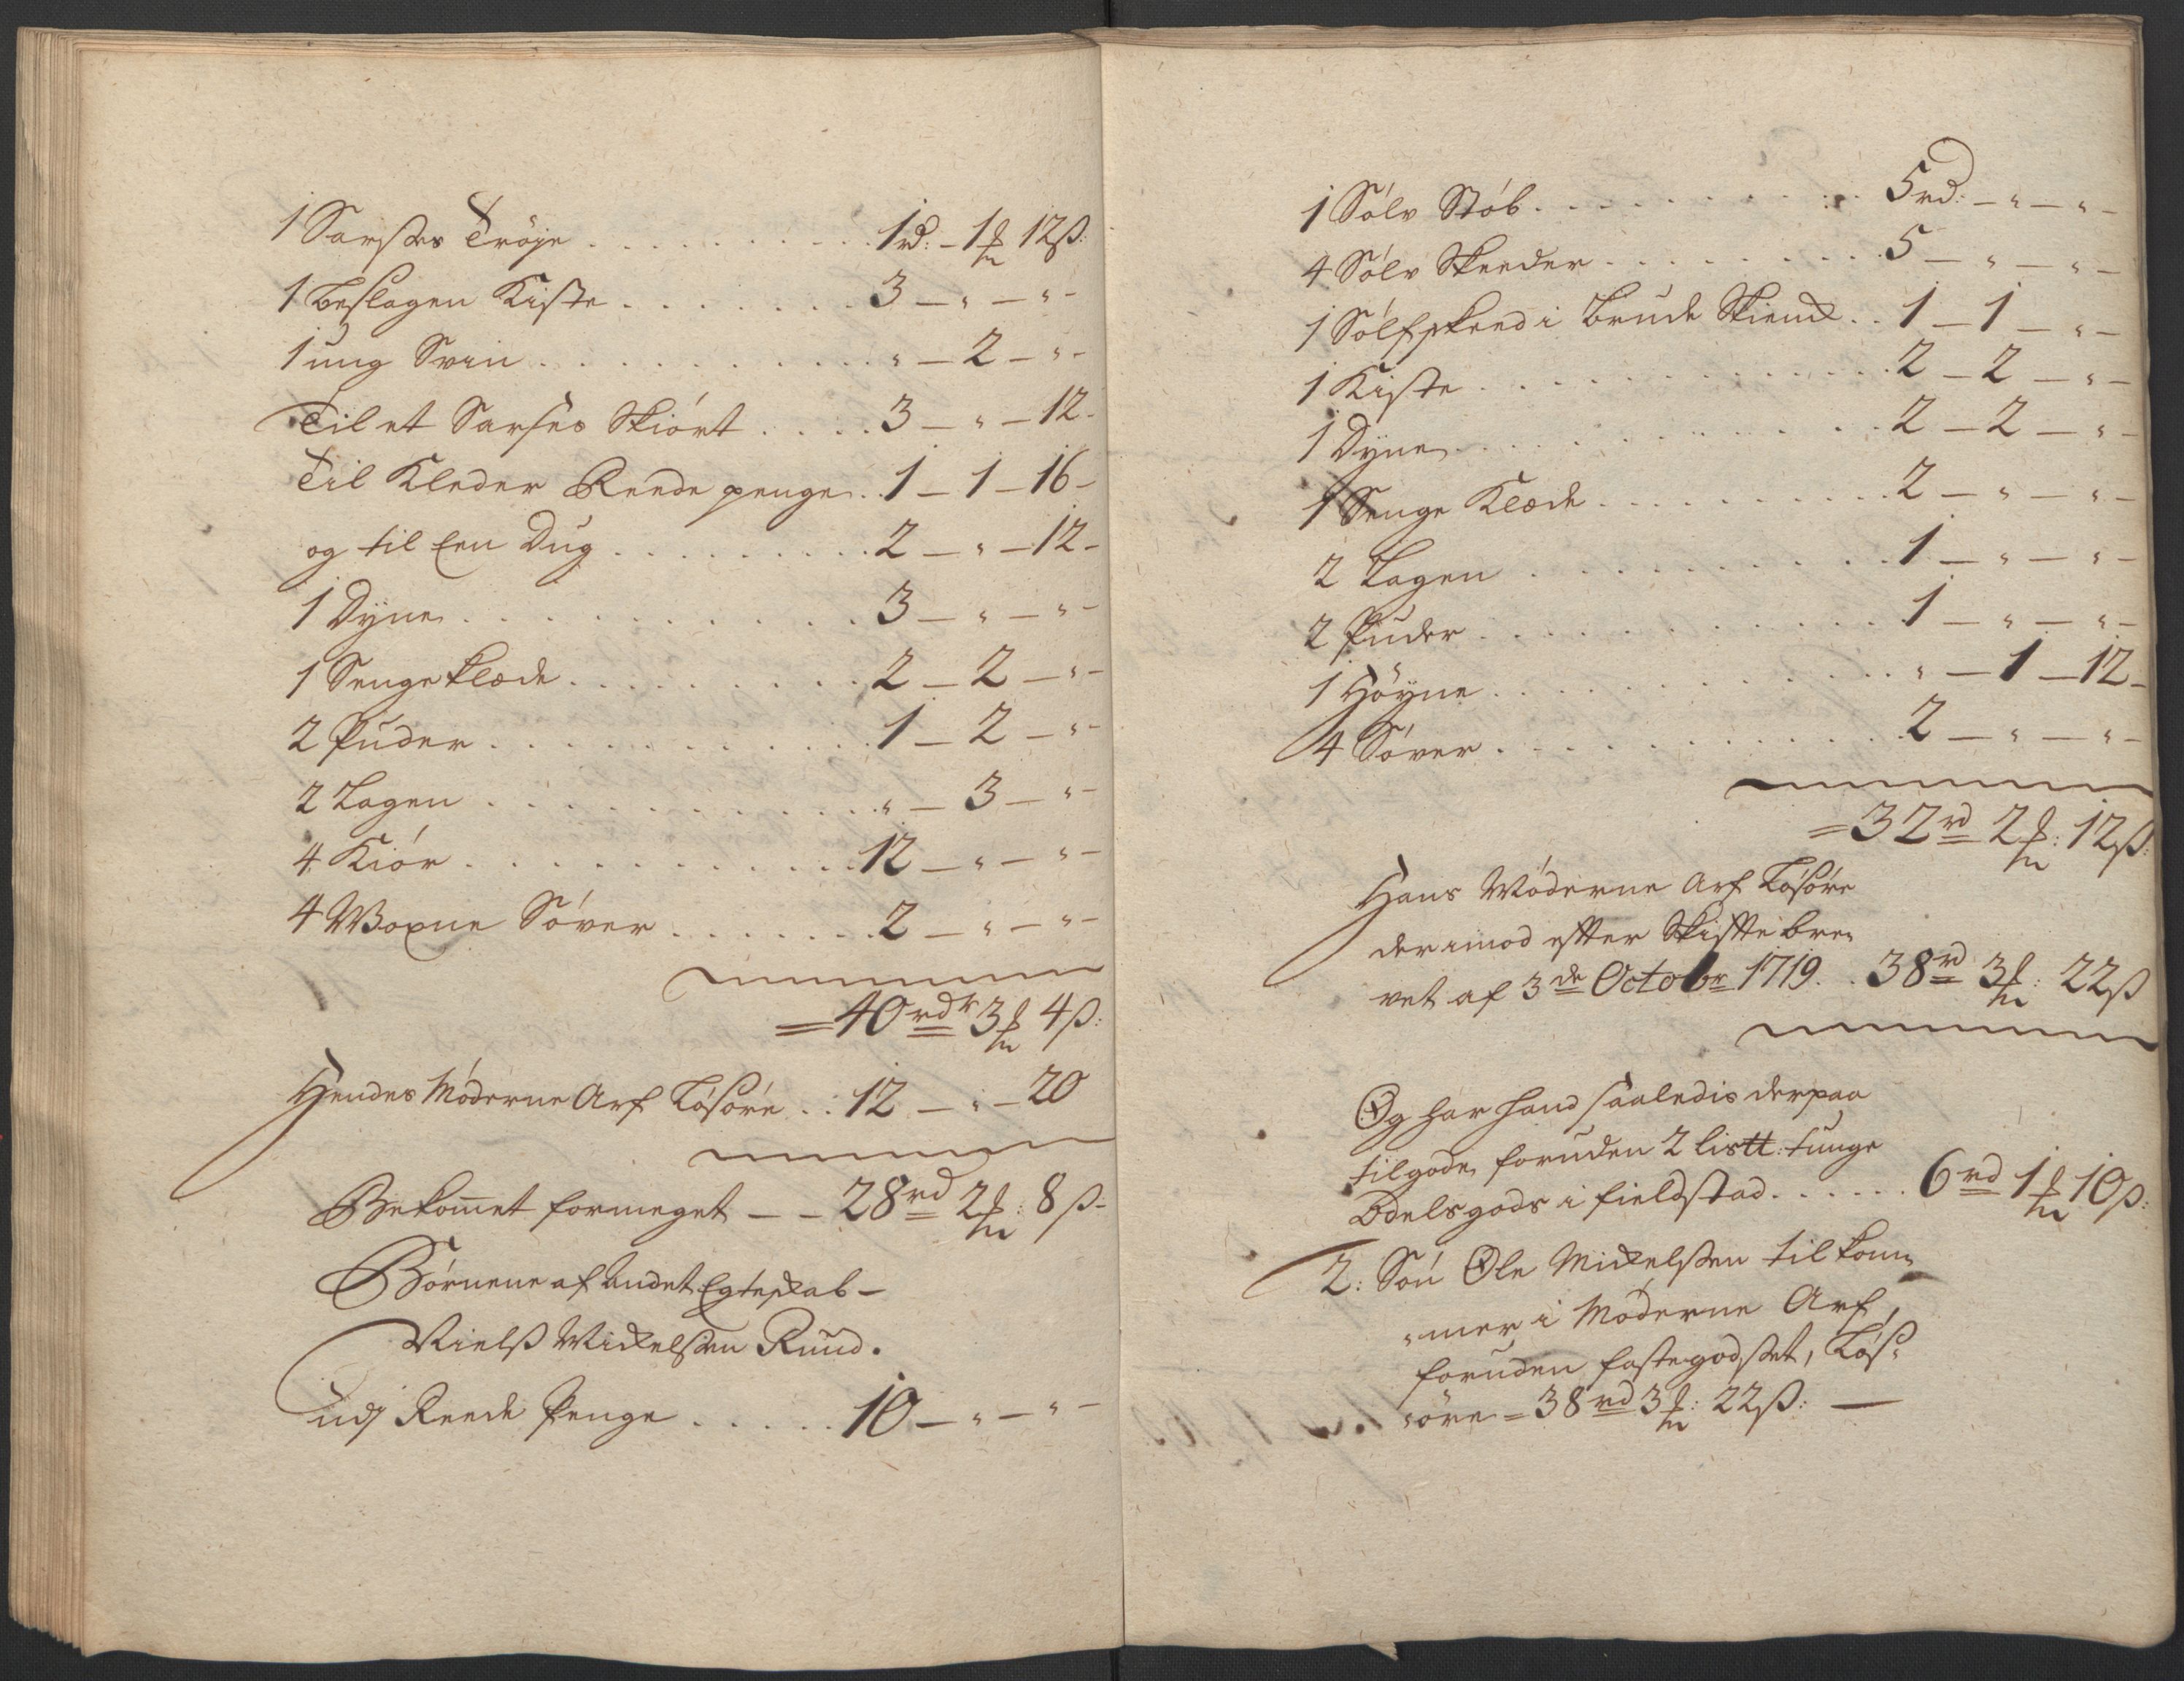 1 Sarsses Trøje . . . . . . . . . . 1rd: – 1 ℳ 12ß:
1 beslagen Kiste . . . . . . . 3 – " – " –
1 ung Svin . . . . . . . . . . . " – 2 – " –
Til et Sarses Skiört . . . . 3 – " – 12 –
Til Kleder Reede penge . . 1 – 1 – 16 –
og til Een Dug . . . . . . . . . 2 – " – 12 –
1 Dyne . . . . . . . . . . . . 3 – " – " –
1 Sengeklæde . . . . . . . . . 2 – 2 – " –
2 Puder . . . . . . . . . . . . 1 – 2 – " –
2 Lagen . . . . . . . . . . . . " – 3 – " –
4 Kiör . . . . . . . . . . . . 12 – " – " –
4 Woxne Söver . . . . . . . 2 – " – " –
= 40 rdr 3 ℳ 4 ß:
Hendes Möderne Arf Lösöre . . : 12 – " – 20
Bekommet formeget – – 28 rd 2 ℳ: 8 ß –
Börnene af Andet Egteskab –
Nielß Mickelssen Ruud.
udj Reede Penge . . . . . 10 – " – " –
1 Sölv Stób . . . . . . . . . . 5 rd: – " – " –
4 Sölv Skeeder . . . . . . . . 5 – " – " –
1 Sölfskeed i Brude Skienck . . 1 – 1 – " –
1 Kiste . . . . . . . . . . . . 2 – 2 – " –
1 Dyne . . . . . . . . . . . . 2 – 2 – " –
1 Senge Klæde . . . . . . . . . 2 – " – " –
2 Lagen . . . . . . . . . . . 1 – " – " –
2 Puder . . . . . . . . . . . . 1 – " – " –
1 Höyne . . . . . . . . . . . . " – 1 – 12 –
4 Söver . . . . . . . . . . . . 2 – " – " –
= 32 rd 2 ℳ: 12 ß:
Hans Möderne Arf Lösöre
derimod efter Skifte bre,
vet af 3de Octobr 1719. . 38 rd 3 ℳ: 22 ß
Og har hand saaledis derpaa
tilgode, foruden 2 listt: tunge
Odelsgods i Fieldstad . . . . . . 6 rd 1 ℳ 10 ß:
2: Sön Ole Mickelssen tilkom,
"mer i Möderne Arf,
foruden fastegodset, Lös,
"öre = 38 rd 3 ℳ: 22 ß: —